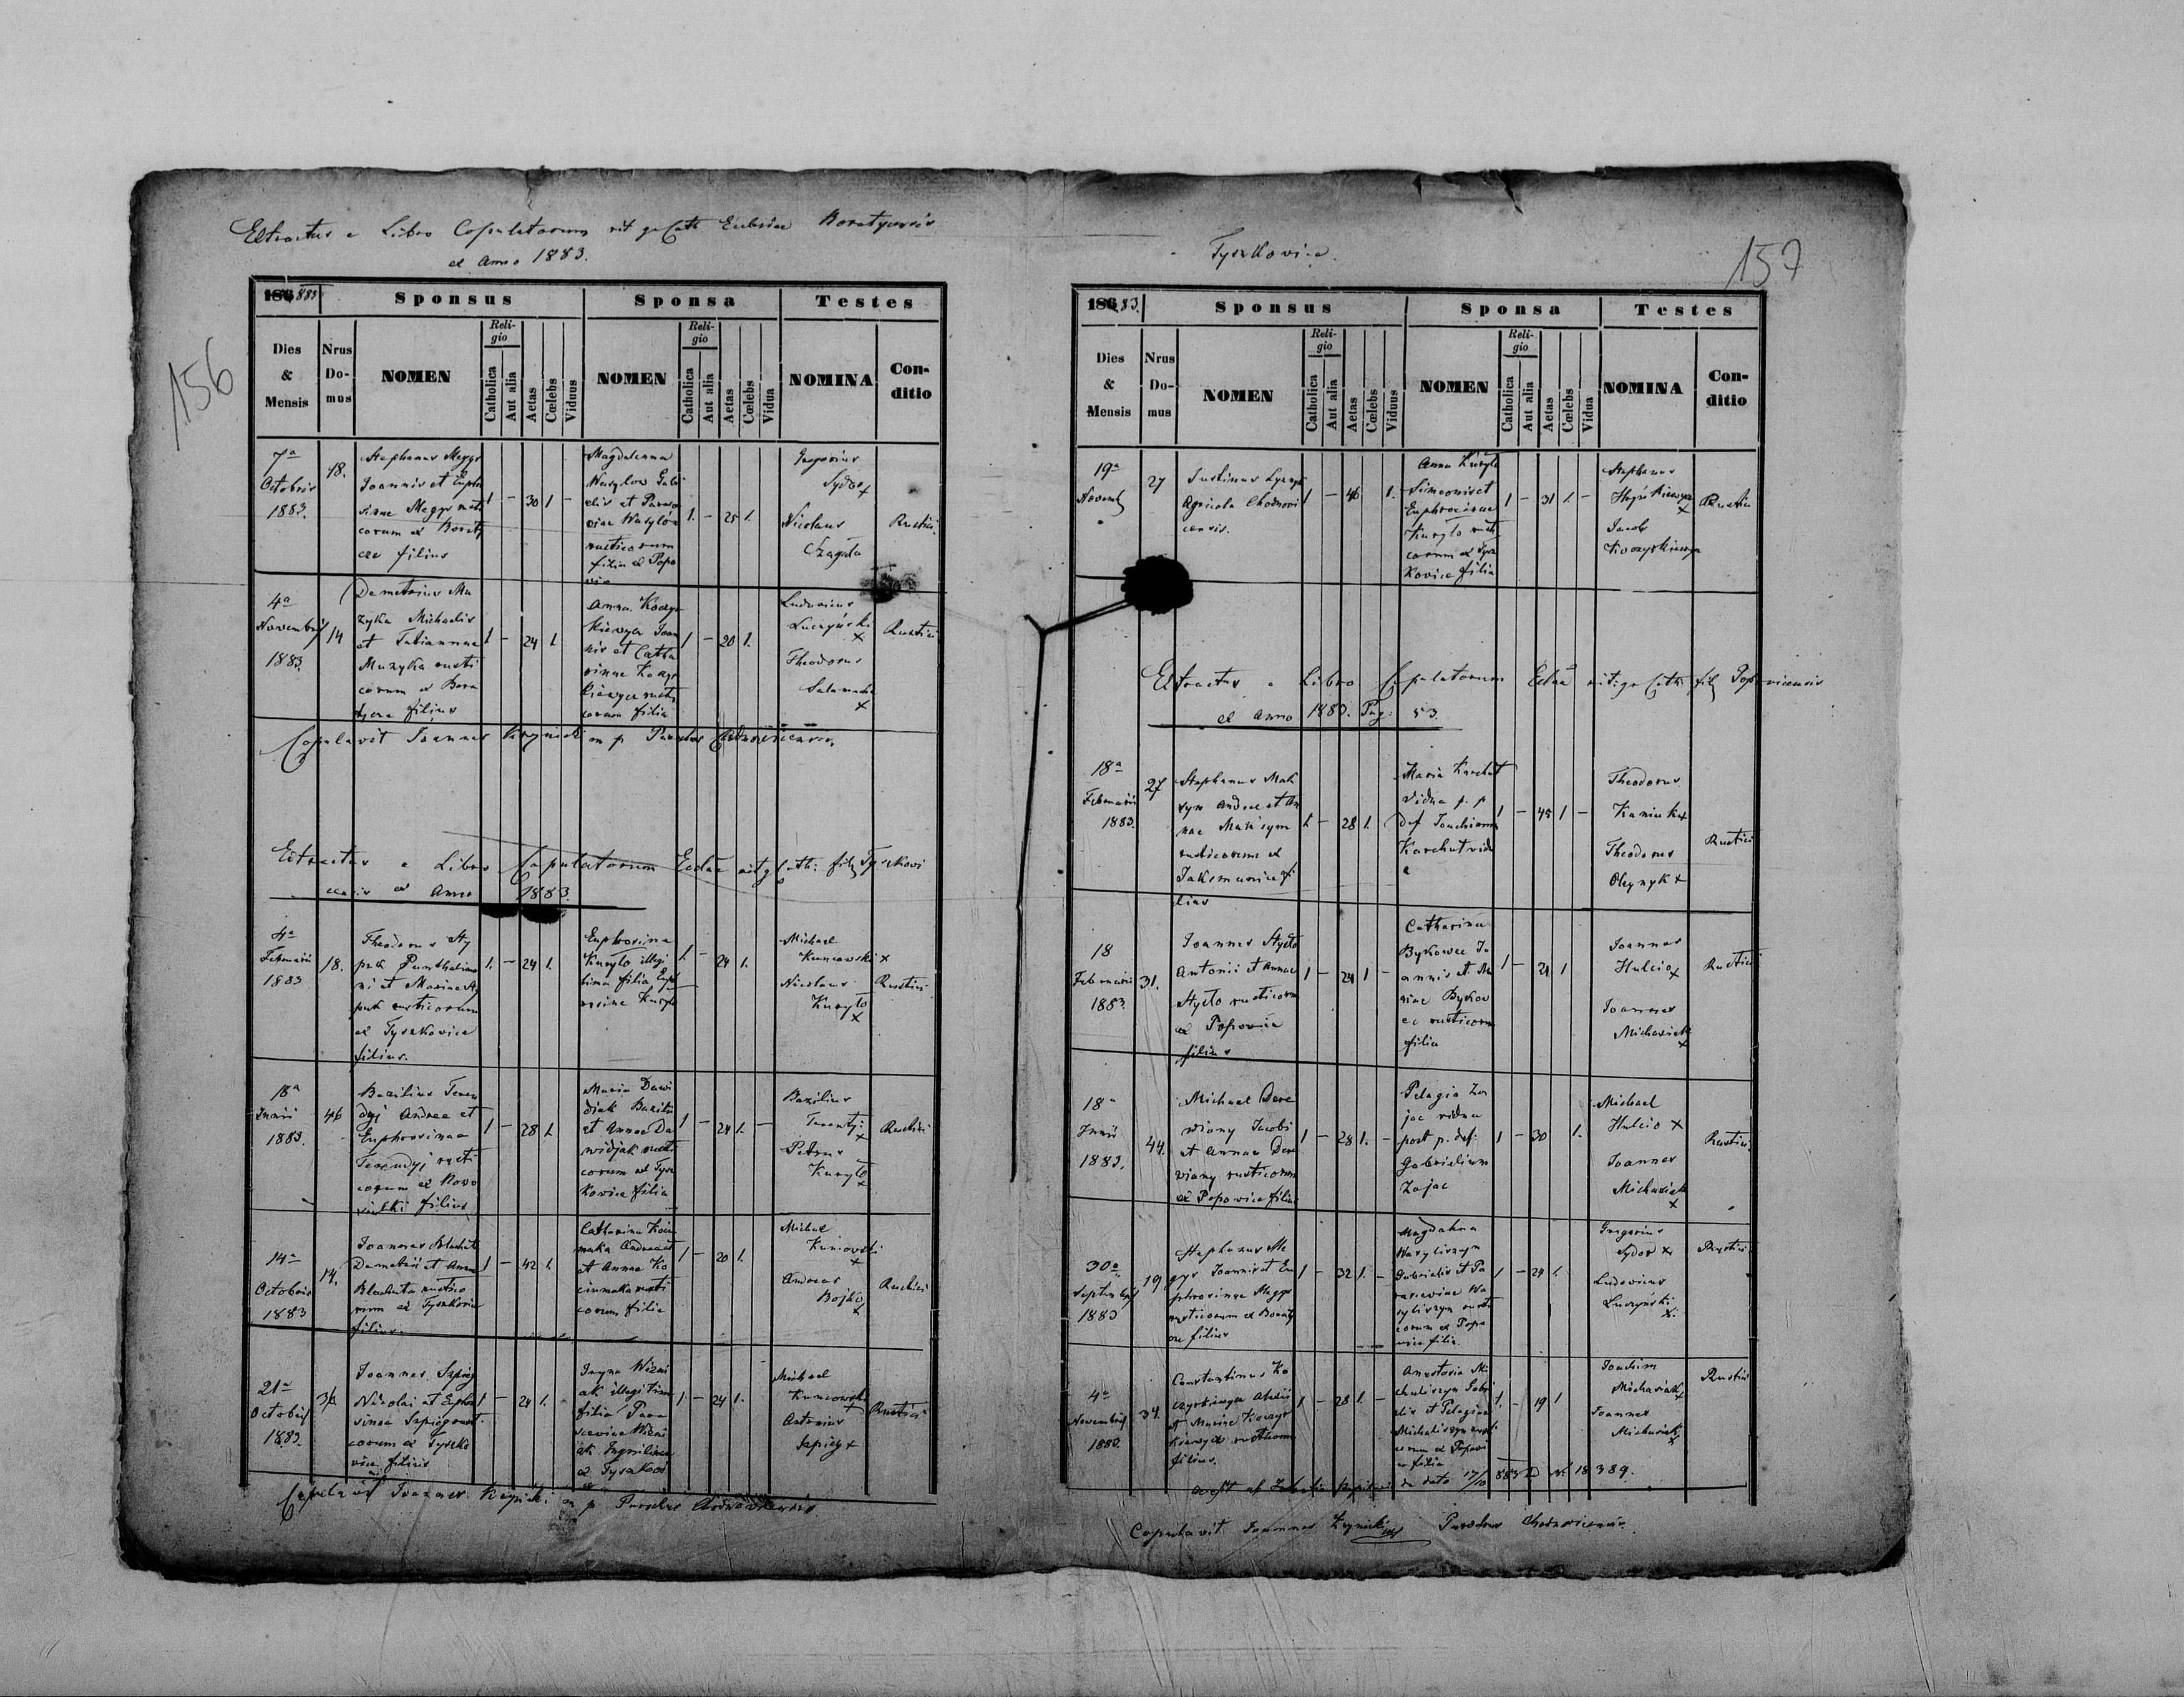 156
Extractus e Libro Copulatorum rit gr Cath Ecclesiae Boratycensis
ex Anno 1883.
186 883
Sponsus
Sponsa
Testes
Dies & Mensis
Nrus Domus
NOMEN
Religio
Catholica
Aut alia
Aetas
Cœlebs
Viduus
NOMEN
Religio
Catholica
Aut alia
Aetas
Cœlebs
Vidua
NOMINA
Conditio
7a
Octobris
1883.
18.
Stephanus Megyr
Joannis et Euphro
sinae Megyr rusti
corum ex Boraty
cze filius
1 – 30 1 –
Magdalenna
Wasylow Gabri
elis et Paras
viae Wasylow
rusticorum
filia ex Popo
vice
1. – 25 1.
Gregorius
Sydor +
Nicolaus
Czagala
Rustici
4a
Novembris
1883.
14
Demetrius Mu
zyka Michaelis
et Tatiannae
Muzyka rusti
corum ex Bora
tycze filius
1 – 24 1
Anna Koczyr
kiewycz Joan
nis et Catha
rinae Koczyr
kiewycz rusti
corum filia
1 – 20 1.
Ludovicus
Luczyński
+
Theodorus
Salamacha
+
Rustici
Copulavit Joannes Krynicki mp Parochus Chodnovicensis.
Extractus e Libro Copulatorum Eccl̄ae rit g Cath: fil Tyszkovi
censis ex Anno 1883.
4a
Februarii
1883
18.
Theodorus Hy
puk Panthalemo
ni et Mariae Hy
puk rusticorum
ex Tyszkovice
filius.
1. – 24 1.
Euphrosina
Kuryło illegi
tima filia Euph
rosinae Kuryło
1. 24 1.
Michael
Kuncowski +
Nicolaus
Kuryło
+
Rustici
18a
Junii
1883.
46
Basilius Teren
dyj Andreae et
Euphrosinae
Terendyj rusti
corum ex Nowo
siółki filius
1 – 28 1.
Maria Dawi
diak Basilii
et Annae Da
widjak rusti
corum ex Tysz
kovice filia
1 – 24 1. –
Basilius
Terentyj
+
Petrus
Kuryło
+
Rustici
14a
Octobris
1883
14.
Joannes Blachuta
Demetrii et Annae
Blachuta rustico
rum ex Tyszkovice
filius.
1 – 42 1.
Catharina Koci
maka Andreae
et Annae Ko
cimaka rusti
corum filia
1 – 20 1.
Michael
Kuncowski
+
Andreas
Bojko
+
Rustici
21a
Octobris
1883.
36
Joannes Szpieg
Nicolai et Euphro
sinae Szpieg rusti
corum ex Tyszko
vice filius
1 – 24 1.
Wizni
ak illegitima
filia Para
sceviae Wizni
ak
ex Tyszkovi
ce
1. – 24 1.
Michael
Kuncowski
+
Antonius
Szpieg +
Rustici
Copulavit Joannes Krynicki mp Parochus Chodnovicensis
Tyszkovice.
157
186 83.
Sponsus
Sponsa
Testes
Dies & Mensis
Nrus Domus
NOMEN
Religio
Catholica
Aut alia
Aetas
Cœlebs
Viduus
NOMEN
Religio
Catholica
Aut alia
Aetas
Cœlebs
Vidua
NOMINA
Conditio
19a
Novemb
27
Justinus
Agricola Chodnovi
censis.
1 – 46 1.
Anna Kuryło
Simeonis et
Euphrosinae
Kuryło rusti
corum ex Tysz
kovice filia
1 – 31 1. –
Stephanus
+
Jacob
Koczyrkiewycz
Rustici
Extractus e Libro Copulatorum Eccl̄ae rit. gr Cath: fil Popovicensis
ex Anno 1883. Pag: 53.
18a
Februarii
1883.
27
Stephanus Mak
sym Andreae et An
nae Maksym
rusticorum ex
Jaksmanice fi
lius
1 – 28 1.
Maria Karchut
vidua p. p
def Joachimum
Karchut vidu
a
1 – 45 1 –
Theodorus
Kaniuka
Theodorus
Olejnyk +
Rustici
18
Februarii
1883.
31.
Joannes Hyćlo
Antonii et Annae
Hyćlo rusticorum
ex Popovice
filius
1 – 24 1 –
Catharina
Bykowec Jo
annis et Ma
riae Bykow
ec rusticorum
filia
1 – 21 1
Joannes
Hulcio +
Joannes
Michasiak
+
Rustici
18a
Junii
1883.
44.
Michael Dere
wiany Jacobi
et Annae Dere
wiany rusticorum
ex Popovice filius
1 – 28 1. –
Pelagia Za
jac vidua
post p. def:
Gabrielium
Zajac
1 – 30 1.
Michael
Hulcio +
Joannes
Michasiak
+
Rustici
30a
Septembris
1883
19
Stephanus Me
gyr Joannis et Eu
phrosinae Megyr
rusticorum ex Boraty
cze filius
1 – 32 1. –
Magdalena
Wasyliszyn
Gabrielis et Pa
rasceviae Wa
syliszyn rusti
corum ex Popo
vice filia
1 – 24 1.
Gregorius
Sydor +
Ludovicus
Luczyński
+
Rustici
4a
Novembris
1883.
34.
Constantinus Ko
czyrkiewycz Alexii
et Mariae Koczyr
kiewycz rusticorum
filius.
1 – 28 1. –
Anastasia Mi
chaliszyn Gabri
elis et Pelagiae
Michaliszyn rusti
corum ex Popovi
ce filia
1. – 19 1
Joachim
Michasiak
+
Joannes
Michasiak
+
Rustici
de dato 17/10 883 № 18389.
Copulavit Joannes Krynicki Parochus Chodnovicensis.